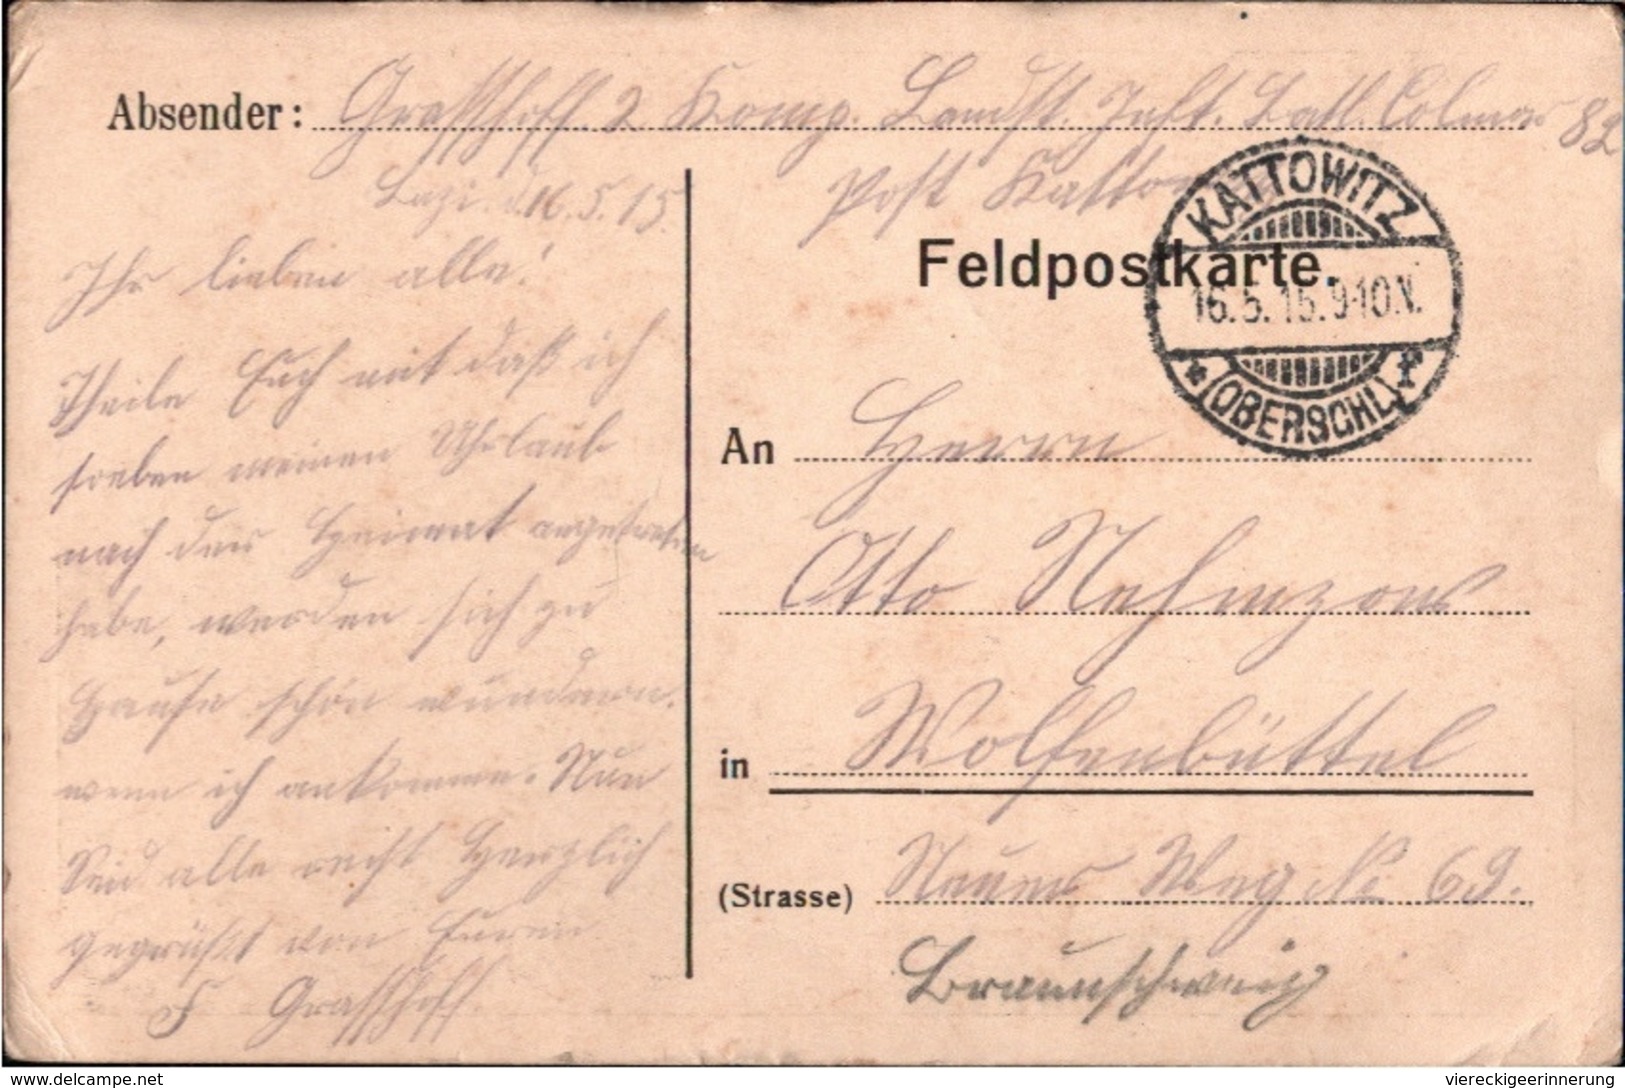 Absender: Grasshoff 2 Komp. Landst. Inft. Batl. Colmar 82
Post Kattow
Lazi. d. 16.5.15.
KATTOWITZ
16.5.15.9-10.V.
* (OBERSCHL.) f
Feldpostkarte.
Ihr lieben alle!
Theile Euch mit daß ich
soeben meinen Uhrlaub
nach der Heimat angetreten
habe, werden sich zu
Hause schön wundern.
wenn ich ankomme. Nun
Seid alle recht Herzlich
gegrüßt von Euren
F Grasshoff
An Herrn
Otto Nehmzow
in Wolfenbüttel
(Strasse) Neuer Weg No 69.
Braunschweig
delcampe.net
viereckigeerinnerung